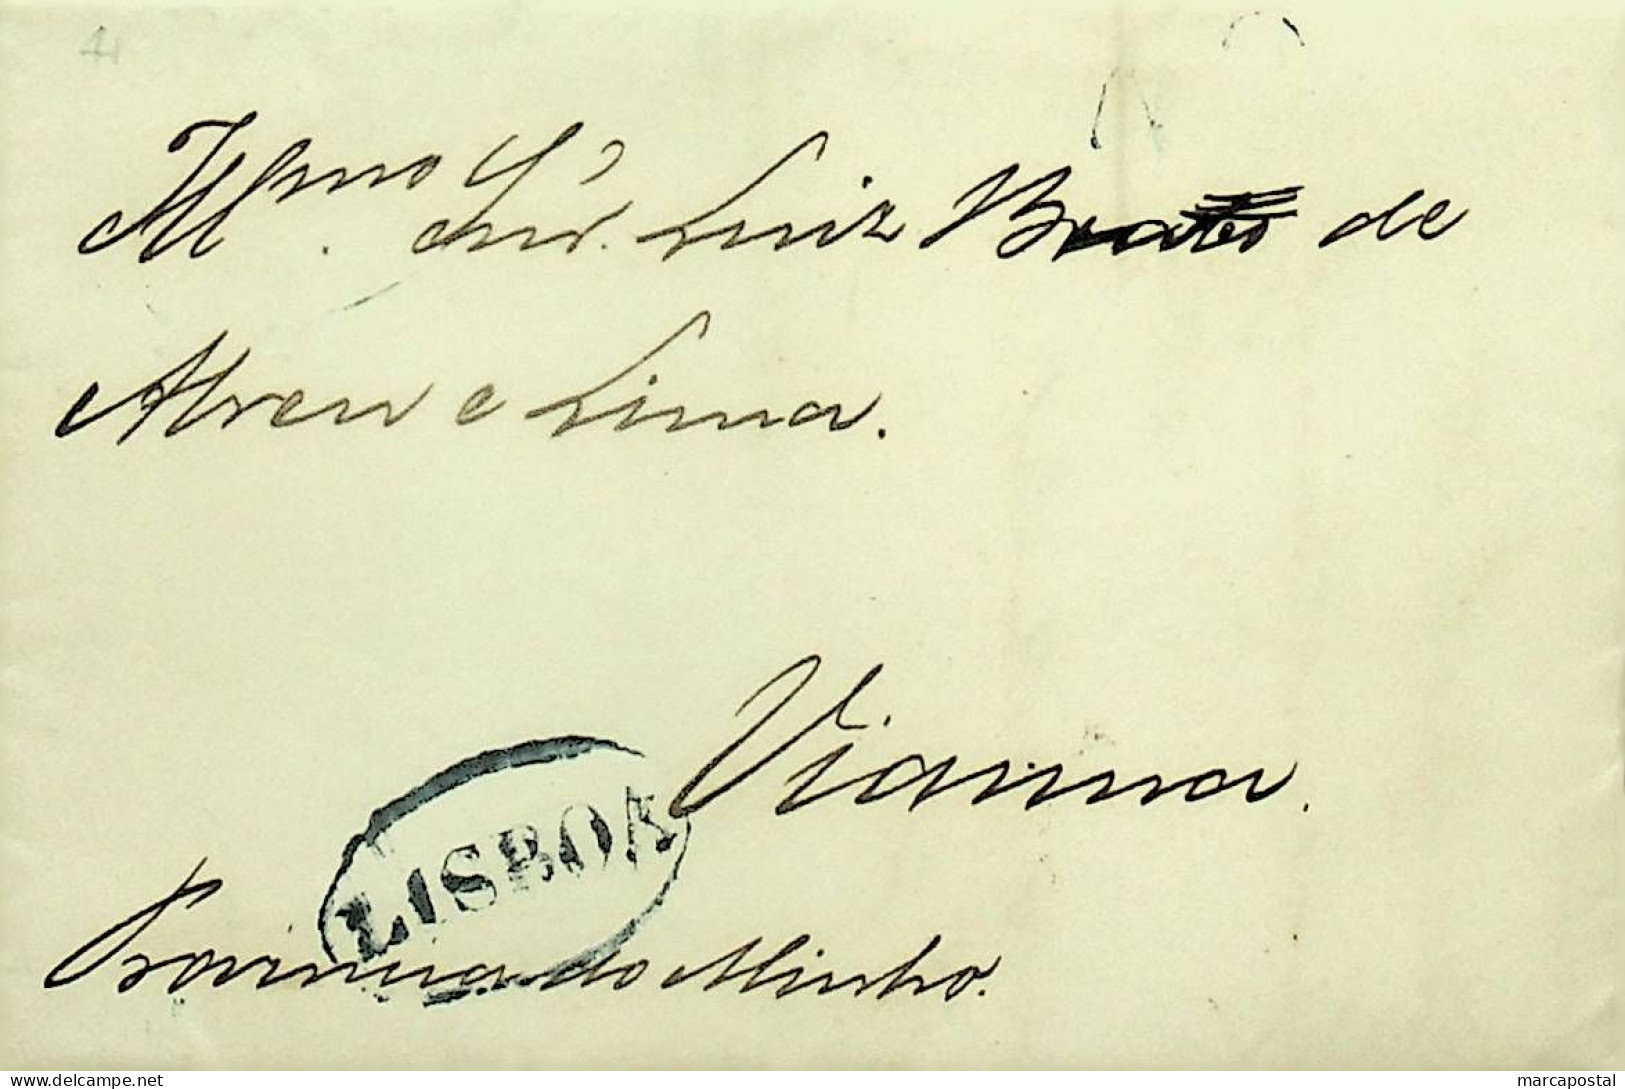 Illmo Snr. Luiz Brito de
Abreu e Lima.
Vianna.
LISBOA
Provincia do Minho.
delcampe.net
marcapostal